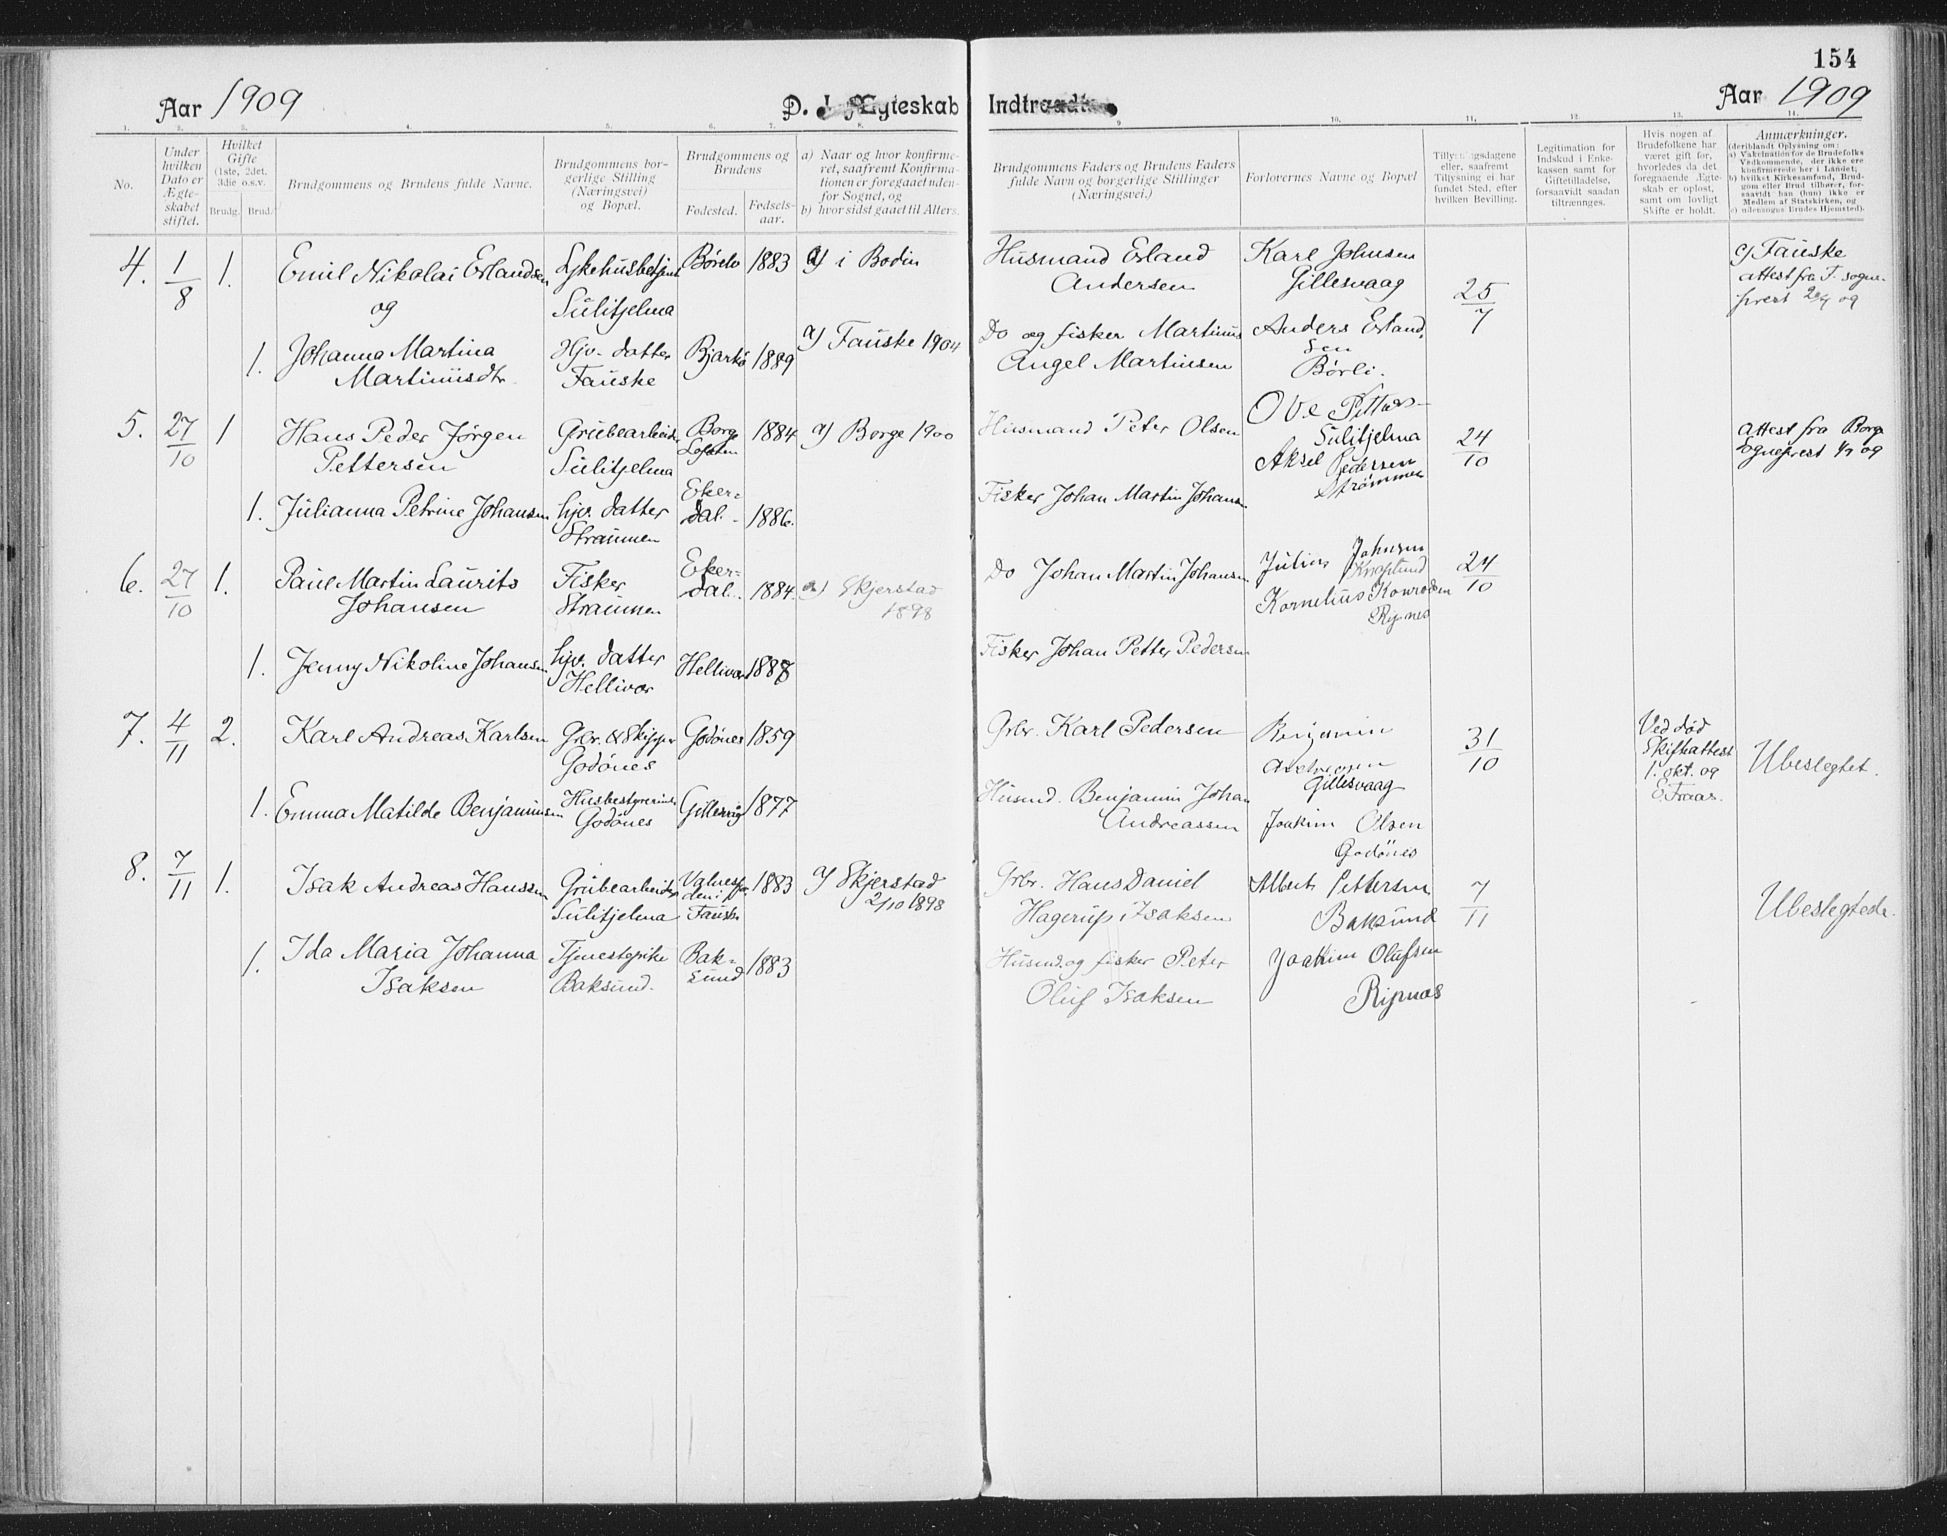 154
Aar 1909
D. I Ægteskab Indtraadte
Aar 1909
1. 2. 3. 4. 5. 6. 7. 8. 9. 10. 11. 12. 13. 14.
No.
Under
hvilken
Dato er
Ægte-
skabet
stiftet.
Hvilket
Gifte
(1ste, 2det,
3die o.s.v.
Brudg. Brud.
Brudgommens og Brudens fulde Navne.
Brudgommens bor-
gerlige Stilling
(Næringsvei)
og Bopæl.
Brudgommens og
Brudens
Fødested.
Fødsels-
aar.
a) Naar og hvor konfirme-
ret, saafremt Konfirma-
tionen er foregaaet uden-
for Sognet, og
b) hvor sidst gaaet til Alters.
Brudgommens Faders og Brudens Faders
fulde Navn og borgerlige Stillinger
(Næringsvei.)
Forlovernes Navne og Bopæl
Tillysningsdagene
eller, saafremt
Tillysning ei har
fundet Sted, efter
hvilken Bevilling.
Legitimation for
Indskud i Enke-
kassen samt for
Giftetilladelse,
forsaavidt saadan
tiltrænges.
Hvis nogen af
Brudefolkene har
været gift før,
hvorledes da det
foregaaende Ægte-
skab er opløst,
samt om lovligt
Skifte er holdt.
Anmærkninger.
(deriblandt Oplysning om:
a) Vakcination for de Brudefolks
Vedkommende, der ikke ere
konfirmerede her i Landet;
b) hvilket Kirkesamfund, Brud-
gom eller Brud tilhører, for-
saavidt han (hun) ikke er
Medlem af Statskirken, og
c) udensogns Brudes Hjemsted).
4. 1/8 1. Emil Nikolai Erlandsen
og
Sulitjelma
1883 a) i Bodin
Husmand Erland
Andersen
Karl Johnsen
Gillesvaag
25/7
c) Fauske
attest fra F. sogne-
prest og
1. Johanna Martina
Martinusdtr.
Hjv. datter
Fauske
Bjarkø 1889
a) Fauske 1904
Do og fisker Martinus
Angel Martinsen
Anders Erland-
sen
Børli.
5. 27/10 1 Hans Peder Jørgen
Pettersen
Grubearbeider
Sulitjelma
Borge
Lofoten
1884 a) Borge 1900
Husmand Peter Olsen
Ove
Sulitjelma
Aksel Pedersen
Strømmen
24/10
attest fra Borge
Sogneprest og
1. Julianna Petrine Johansen
hjv. datter
Straumen
Eker-
dal. 1886.
Fisker Johan Martin Johansen
6. 27/10 1. Paul Martin Laurits
Johansen
Fisker
Straumen
Eker-
dal. 1884. a) Skjerstad
1898
Do Johan Martin Johansen
Julius Johnsen
Knaplund
Kornelius Konradsen
Ripnes
24/10
1. Jenny Nikoline Johansen
hjv. datter
Hellivær
Hellivær 1888
Fisker Johan Petter Pedersen
7. 4/11 2. Karl Andreas Karlsen
Grbr. & Skipper
Godönes
Godönes 1859
Grbr. Karl Pedersen
Benjamin
Gillesvaag
31/10
Ved død
Skifteattest
1. okt. og
Ubeslegtet.
1. Emma Matilde Benjaminsen
Husbestyrerinde
Godönes
Gillesvåg 1877
Husmd. Benjamin Johan
Andreassen
Joakim Olsen
Godönes
8. 7/11 1. Isak Andreas Hanssen
Grubearbeider
Sulitjelma
Fauske
1883 a) Skjerstad
2/10 1898
Grbr. Hans Daniel
Hagerup Isaksen
Albert Pettersen
Baksund
7/11
Ubeslegtede.
1. Ida Maria Johanna
Isaksen
Tjenestepike
Baksund.
Bak-
sund 1883
Husmd. og fisker Peter
Oluf Isaksen
Joakim Olufsen
Ripnes